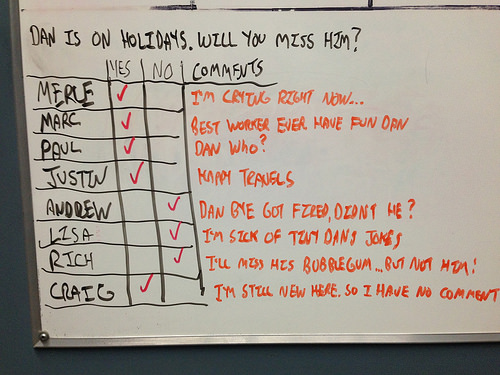 DAN IS ON HOLIDAYS. WILL YOU MISS HIM?
YES NO COMMENTS
MERLE ✓ I'M CRYING RIGHT NOW...
MARC ✓ BEST WORKER EVER HAVE FUN DAN
PAUL ✓ DAN WHO?
JUSTIN ✓ HAPPY TRAVELS
ANDREW ✓ DAN BYE GOT FIRED, DIDN'T HE?
LISA ✓ I'M SICK OF TINY DAN'S JOKES
RICH ✓ I'LL MISS HIS BUBBLEGUM...BUT NOT HIM!
CRAIG ✓ I'M STILL NEW HERE. SO I HAVE NO COMMENT